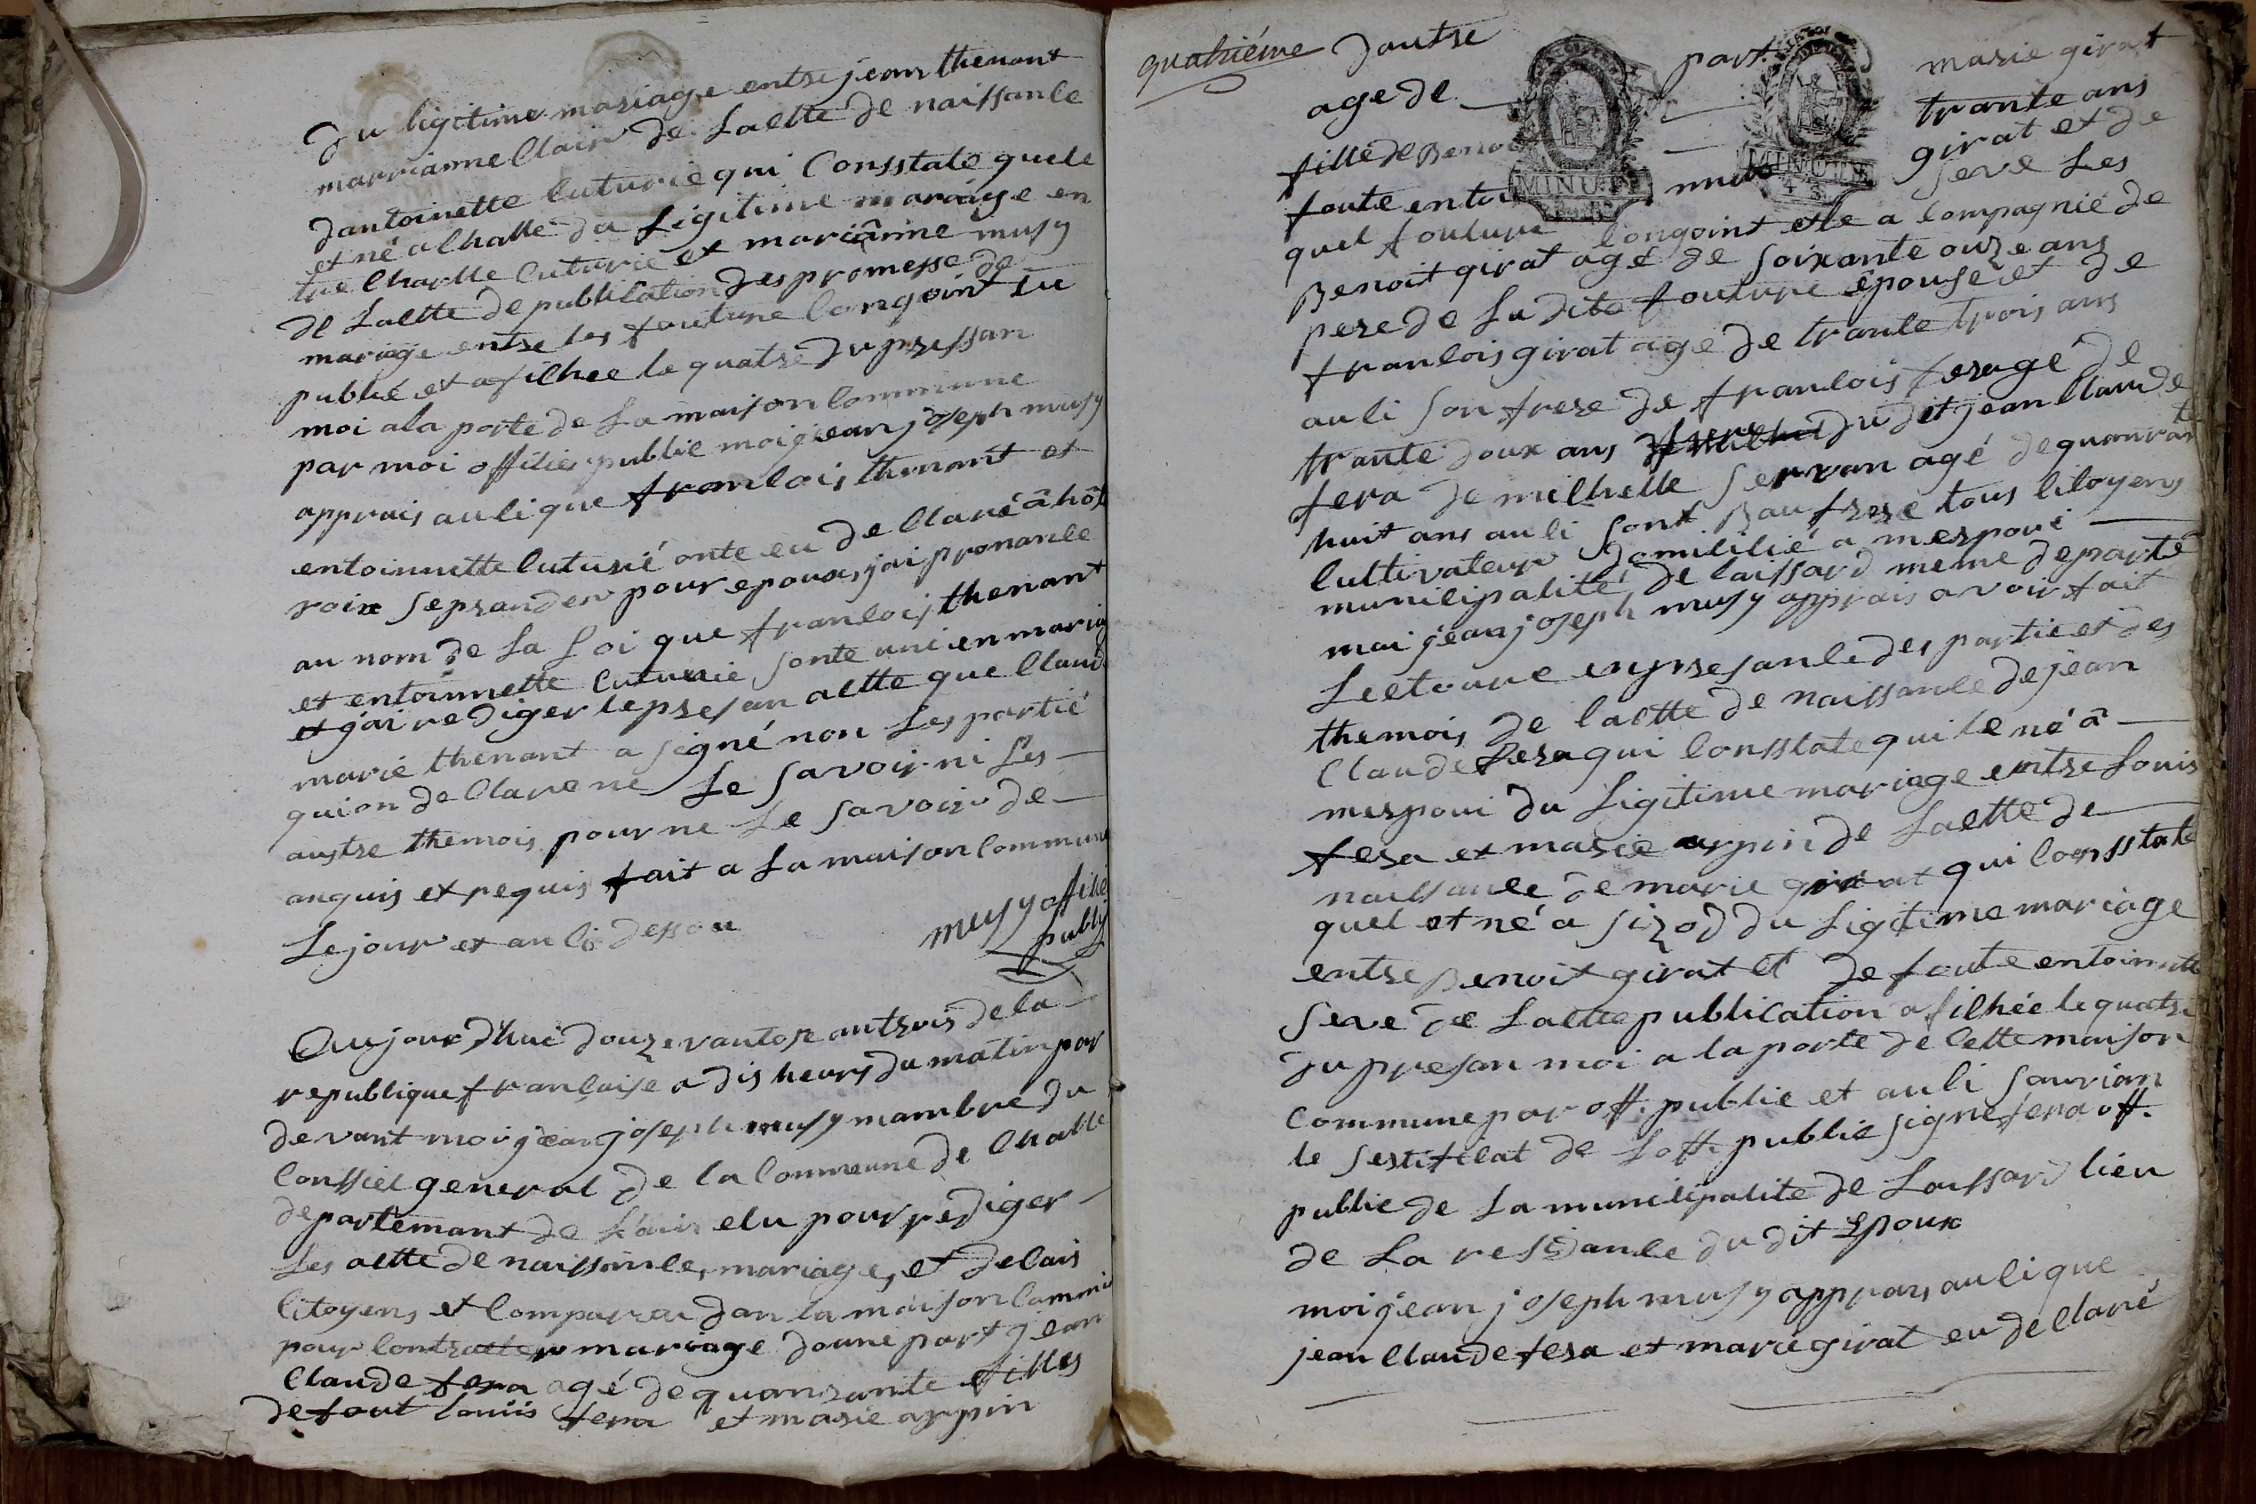 du ligitime mariage entre jean thenant
marrianne Clair de Lactte de naissance
dantoinette Cuturie qui Consstate quele
et né a Challe du Ligitime maraige en
tre Charlle Cuturie et mariânne musy
de Lactte de publication des promesse de
mariage entre les fouture Congoint du
publié et afichee le quatre du pressan
moi a la porte de La maison Commune
par moi officier public moi jean joseph musy
apprais auci que francois thenant et
entoinnette Cuturié onte eu de Claré â hôte
voix seprander pour epoux, jai prononce
au nom de La Loi que francois thenant
et entoinnette Cuturie sonte uni en mariag
et j'ai rediger le presan actte que Claude
marie thenant a signé non Les partié
qui on de Clare ne Le savoir ni Les
austre themois pour ne Le savoir de
anquis et requis fait a La maison Commune
Le jour et an ci dessou
musy officié
public
Aujourdhui douze vantose an trois de la
republique francaise a dis heurs du matin par
devant moi jean joseph musy mambre du
Conssiel general de la Commune de Challe
departemant de L'ain elu pour rediger
Les actte de naissance, mariage, et de cais
Citoyens et Comparai dan la maison Commu
pour Contracter mariage doune part jean
Claude fera agé de quaurante filles
de fout Louis fera et marie arpin
quatriéme dautre part marie girat
age de trante ans
fille de Benoi girat et de
foute entoi nnette Seve Les
quel fouture Congoint ete a Compagnié de
Benoit girat agé de soixante ouze ans
pere de La dite fouture épouse et de
francois girat age de trante trois ans
auci son frere de francois feragé de
trante doux ans frere du dit jean Claude
fera de michelle servan agé de quaurante
huit ans auci sont Baufrere tous Citoyens
Cultivateur domicilié a mespoui
municipalité de Laissard meme departé
moi jean joseph musy apprais avoir fait
Lectoure en presance des partie et des
themois de Lactte de naissance de jean
Claude Fera qui Consstate qui le né â
mespoui du Ligitime mariage entre Louis
fera et marie arpin de Lactte de
naissance de marie girat qui Consstate
quel et né a sizod du Ligitime mariage
entre Benoit girat et de foute entoinnette
Seve de Lactte publication afichée le quatre
du presan moi a la porte de Cette maison
Commune par off. public et auci sauvian
le sestificat de Loff. public signé fera off.
public de La municipalite de Laissard lieu
de La residance du dit Epoux
moi jean joseph musy apprais auci que
jean Claude fera et marie girat eu de Claré
MINUTE
MINUTE